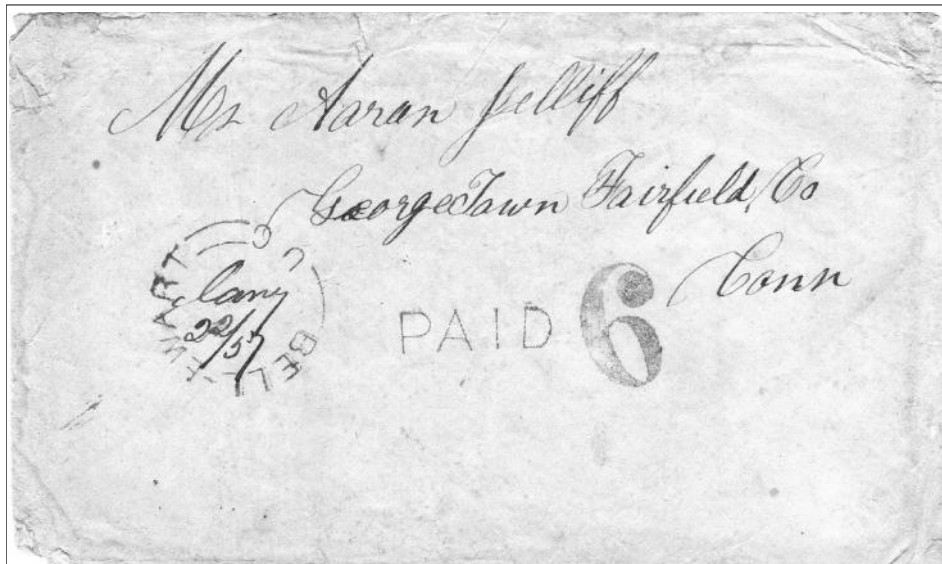 Mr Aaran Jelliff
Georgetown Fairfield, Co
Conn
BELL EWART
Jany
22/57
PAID 6